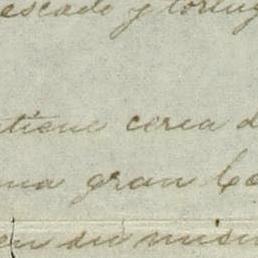 escado y tortug
tiene cerca d
una gran Co
en su mism